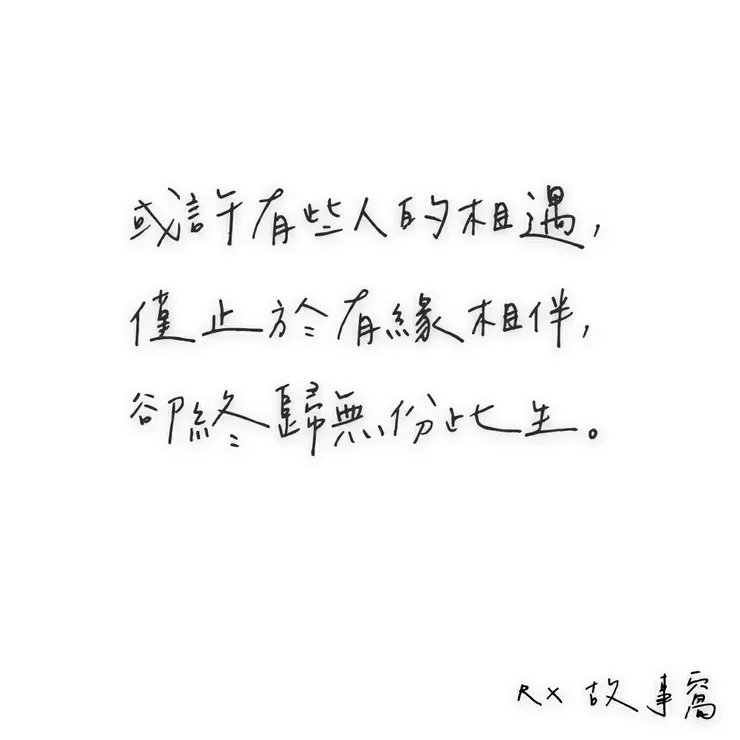 或許有些人的相遇，
僅止於有緣相伴，
卻終歸無份此生。
RX 故事窩